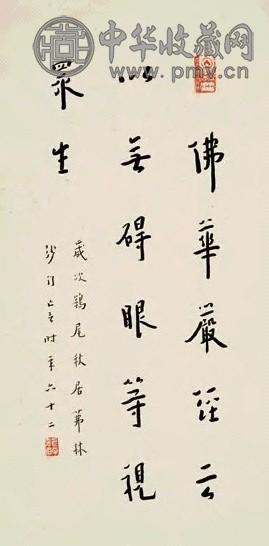 中华收藏网
www.pmv.cn
佛華嚴經云
以無碍眼等視
眾生
歲次鶉尾秋居茀林
沙門亡言時年六十二